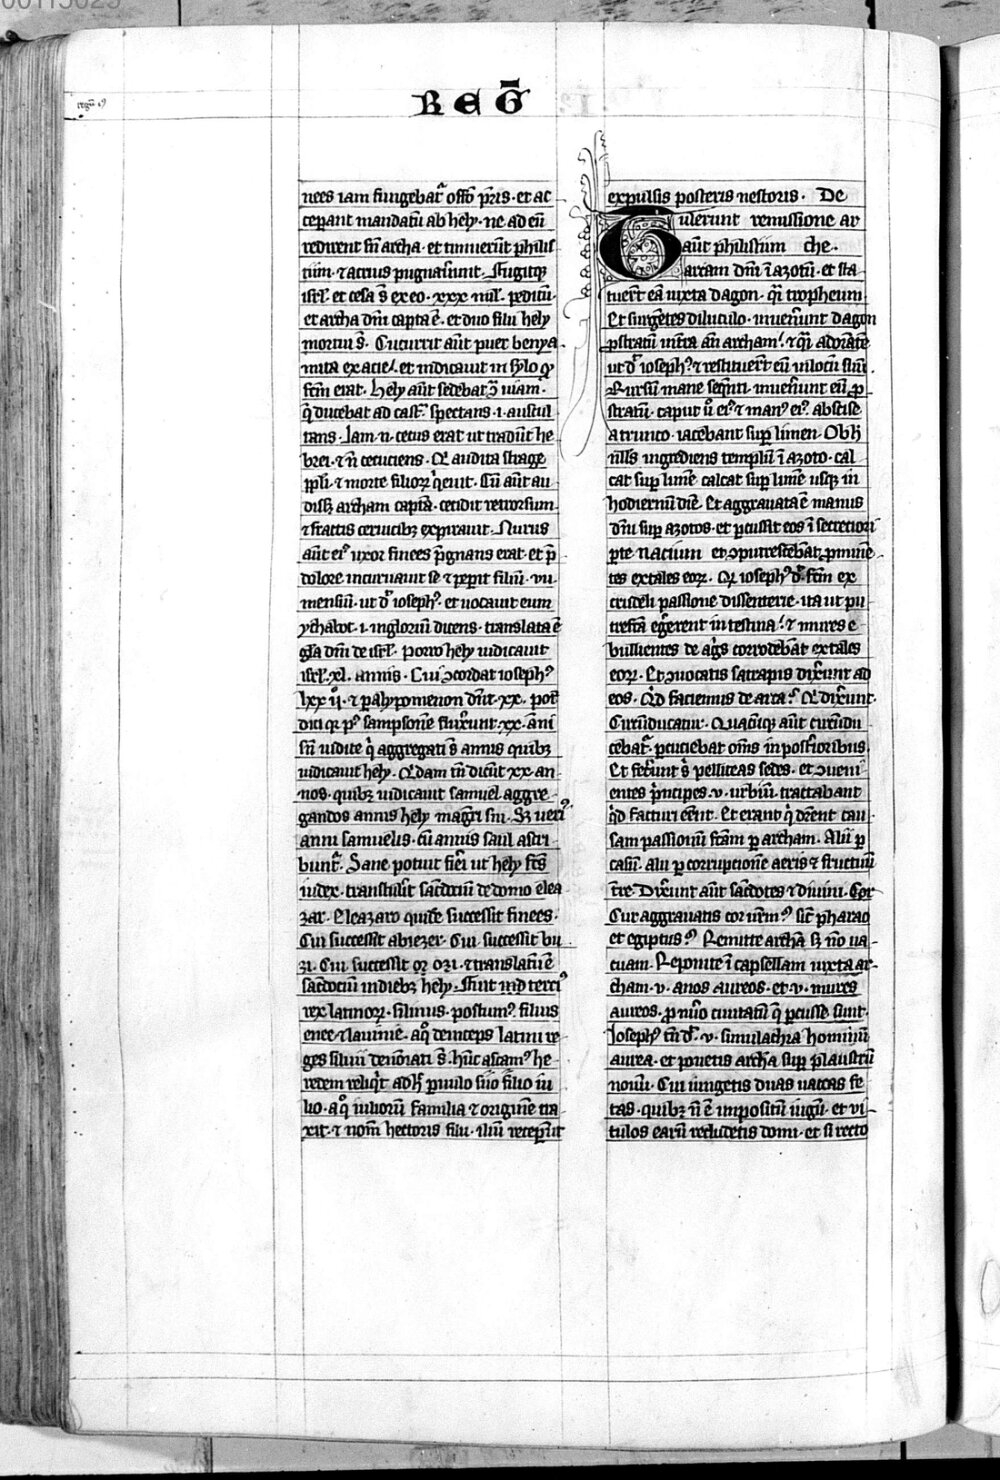 00113029
regū i⁹
REḠ
nees iam fungebat᷑ offō p̄ris · et ac
ceperant mandatū ab hely · ne ad eū
redirent sn̄ archa · et timuerūt philis
tiim · ⁊ acrius pugnauerunt · Fugitq̨
isrl̄ · et cesa s̄ ex eo · xxx mil̄ · peditū ·
et archa dn̄i capta ē · et duo filii hely
mortui s̄ · Cucurrit aūt puer benya
mita ex acie · et indicauit in sylo qd̄
fcm̄ erat · Hely aūt sedebat ꝯ̄ uiam ·
q̄ ducebat ad cast᷑ · spectans · i · auscul
tans · Jam · n · cecus erat ut tradūt he
brei · et n̄ cecuciens · Qͥ audita strage
ppl̄i · ⁊ morte filioꝝ q̄euit · Cū aūt au
disꝫ archam captā · cecidit retrorsum ·
⁊ fractis ceruicibꝫ expirauit · Nurus
aūt ei⁹ uxor finees p̄gnans erat · et p̄
dolore incuruauit se ⁊ peperit filiū · vii
mensiū · ut d᷑ ioseph⁹ · et uocauit eum
ychabot · i · inglorium dicens · translata ē
gl̄a dn̄i de isrl̄ · Porro hely iudicauit
isrl̄ · xl · annis · Cui ꝯcordat ioseph⁹
lxx ū · ⁊ paralypomenon dn̄t · xx · pot̄
dici qꝫ p⁹ sampsonē fluxerunt · xx · anni
sn̄ iudice q̄ aggregati s̄ annis quibꝫ
iudicauit hely · Quidam tn̄ dicūt xx · an
nos · quibꝫ iudicauit samuel aggre
gandos annis hely magr̄i sui · Sꝫ ueri⁹
anni samuelis · cū annis saul ascri
bunt᷑ · Sane potuit fieri ut hely fc̄s
iudex · transtulit sacdociū de domo elea
zar · Eleazaro quippe successit finees ·
Cui successit abiezer · Cui successit bu
zi · Cui successit ozi · ⁊ translatū ē
sacdociū in diebꝫ hely · Fuit in d terci⁹
rex latinoꝝ · siluius · postum⁹ · filius
enee ⁊ lauinie · a q̊ deinceps latini re
ges siluii denoīati s̄ · hūc ascani⁹ he
redem reliq̄t adhc̄ paruulo suo filio iu
lio · a q̊ iuliorū familia ⁊ originē tra
xit · ⁊ nom̄ hectoris filii · iliū receperūt
expulsis posteris nestoris · De
Tulerunt remissione ar
aūt philistiim che ·
arcam dn̄i ī azotū · et sta
tuer̄t eā iuxta dagon · q̄i tropheum
Et surgētes diluculo · inuenerunt dagon
ꝓstratū in trā an̄ archam · ⁊ q̄i adorātē
ut d᷑ ioseph⁹ · ⁊ restituer̄t eū in locū suū ·
Rursū mane seq̄nti · inuenerunt eū ꝓ
stratū · caput ū ei⁹ ⁊ man⁹ ei⁹ · abscise
a trunco · iacebant sup limen · Ob h̄
null̄s ingrediens templū ī azoto · cal
cat sup limē calcat sup limē usqꝫ in
hodiernū diē · Et aggrauata ē manus
dn̄i sup azotos · et percussit eos ī secreciori
parte nacium · et ꝯputrescebāt prominē
tes extales eoꝝ · Qͥ ioseph⁹ d᷑ · fcm̄ ex
crudeli passione dissenterie · ita ut pu
trefacta egererent intestina · ⁊ mures e
bullientes de agris corrodebāt extales
eoꝝ · Et ꝯuocatis satrapis dixerunt ad
eos · Qd̄ faciemus de arca · Qͥ dixerunt ·
Circūducatur · Quacūqꝫ aūt circūdu
cebat᷑ · percuciebat oms̄ in posterioribus
Et fecerunt s̄ pelliceas sedes · et ꝯueni
entes p̄ncipes · v · urbiū · tractabant
qd̄ facturi eēnt · Et erant q̄ dicerent cau
sam passionū fcām per archam · Alii per
casū · alii per corrupcionē aeris ⁊ fructuū
tr̄e · Dixerunt aūt sacdotes ⁊ diuini · Cor
Cur aggrauatis cor ur̄m · sic̄ pharao
et egiptus · Remitte archā sꝫ nō ua
cuam · Reponite ī capsellam iuxta ar
cham · v · anos aureos · et · v · mures
aureos · ꝓ nuō ciuitatū q̄ percusse sunt ·
Joseph⁹ tn̄ d᷑ · v · simulachra hominū
aurea · et ponetis archā sup plaustrū
nouū · Cui iungetis duas uaccas fe
tas · quibꝫ n̄ ē impositū iugū · et vi
tulos earū recludetis domi · et si recto